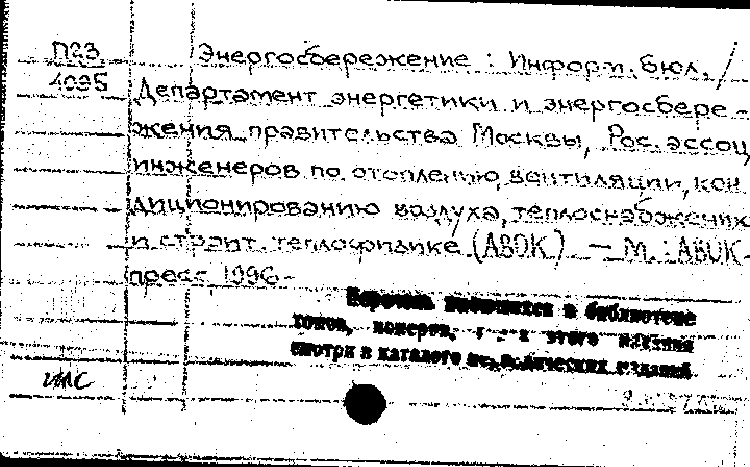 П23
4095
Энергосбережение : Информ. бюл. /
Департамент энергетики и энергосбере-
жения правительства Москвы, Рос. ассоц.
инженеров по отоплению, вентиляции, кон
диционированию воздуха, теплоснабжению
и строит. теплофизике (АВОК). — М. : АВОК-
пресс 1996-
Перечень имеющихся в библиотеке
томов, номеров, этого издания
смотри в каталоге периодических изданий